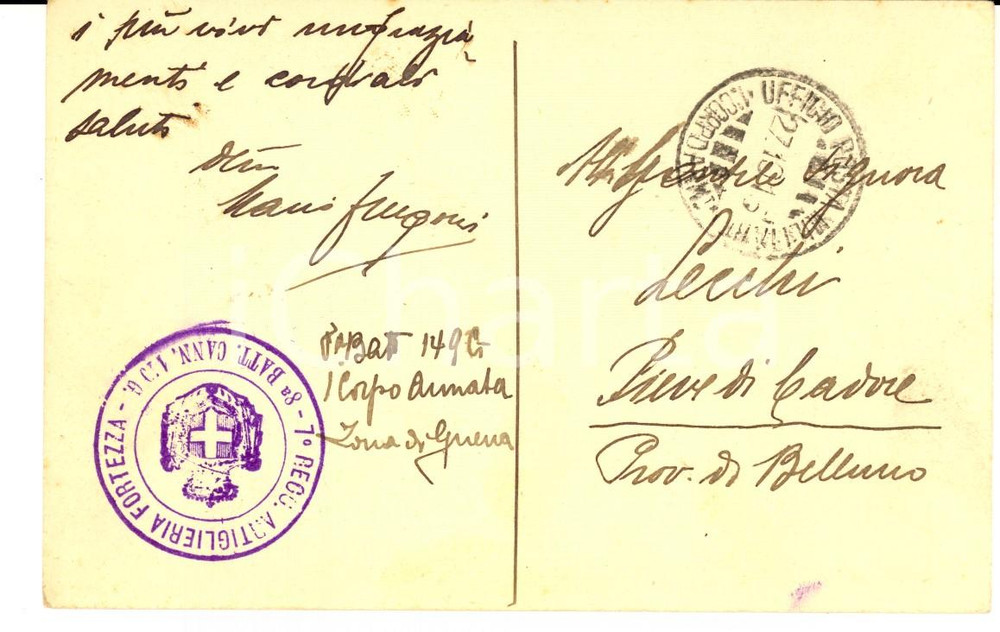 i più vivi ringrazia-
menti e cordiali
saluti
dev
Mario
8ª Batt 149 G
I Corpo Armata
Zona di Guerra
7º REGG. ARTIGLIERIA FORTEZZA - 8ª BATT. CANN. 149 G. -
UFFICIO POSTA MILITARE
27.1
Alla Gentile Signora
Zecchi
Pieve di Cadore
Prov. di Belluno
iCharta